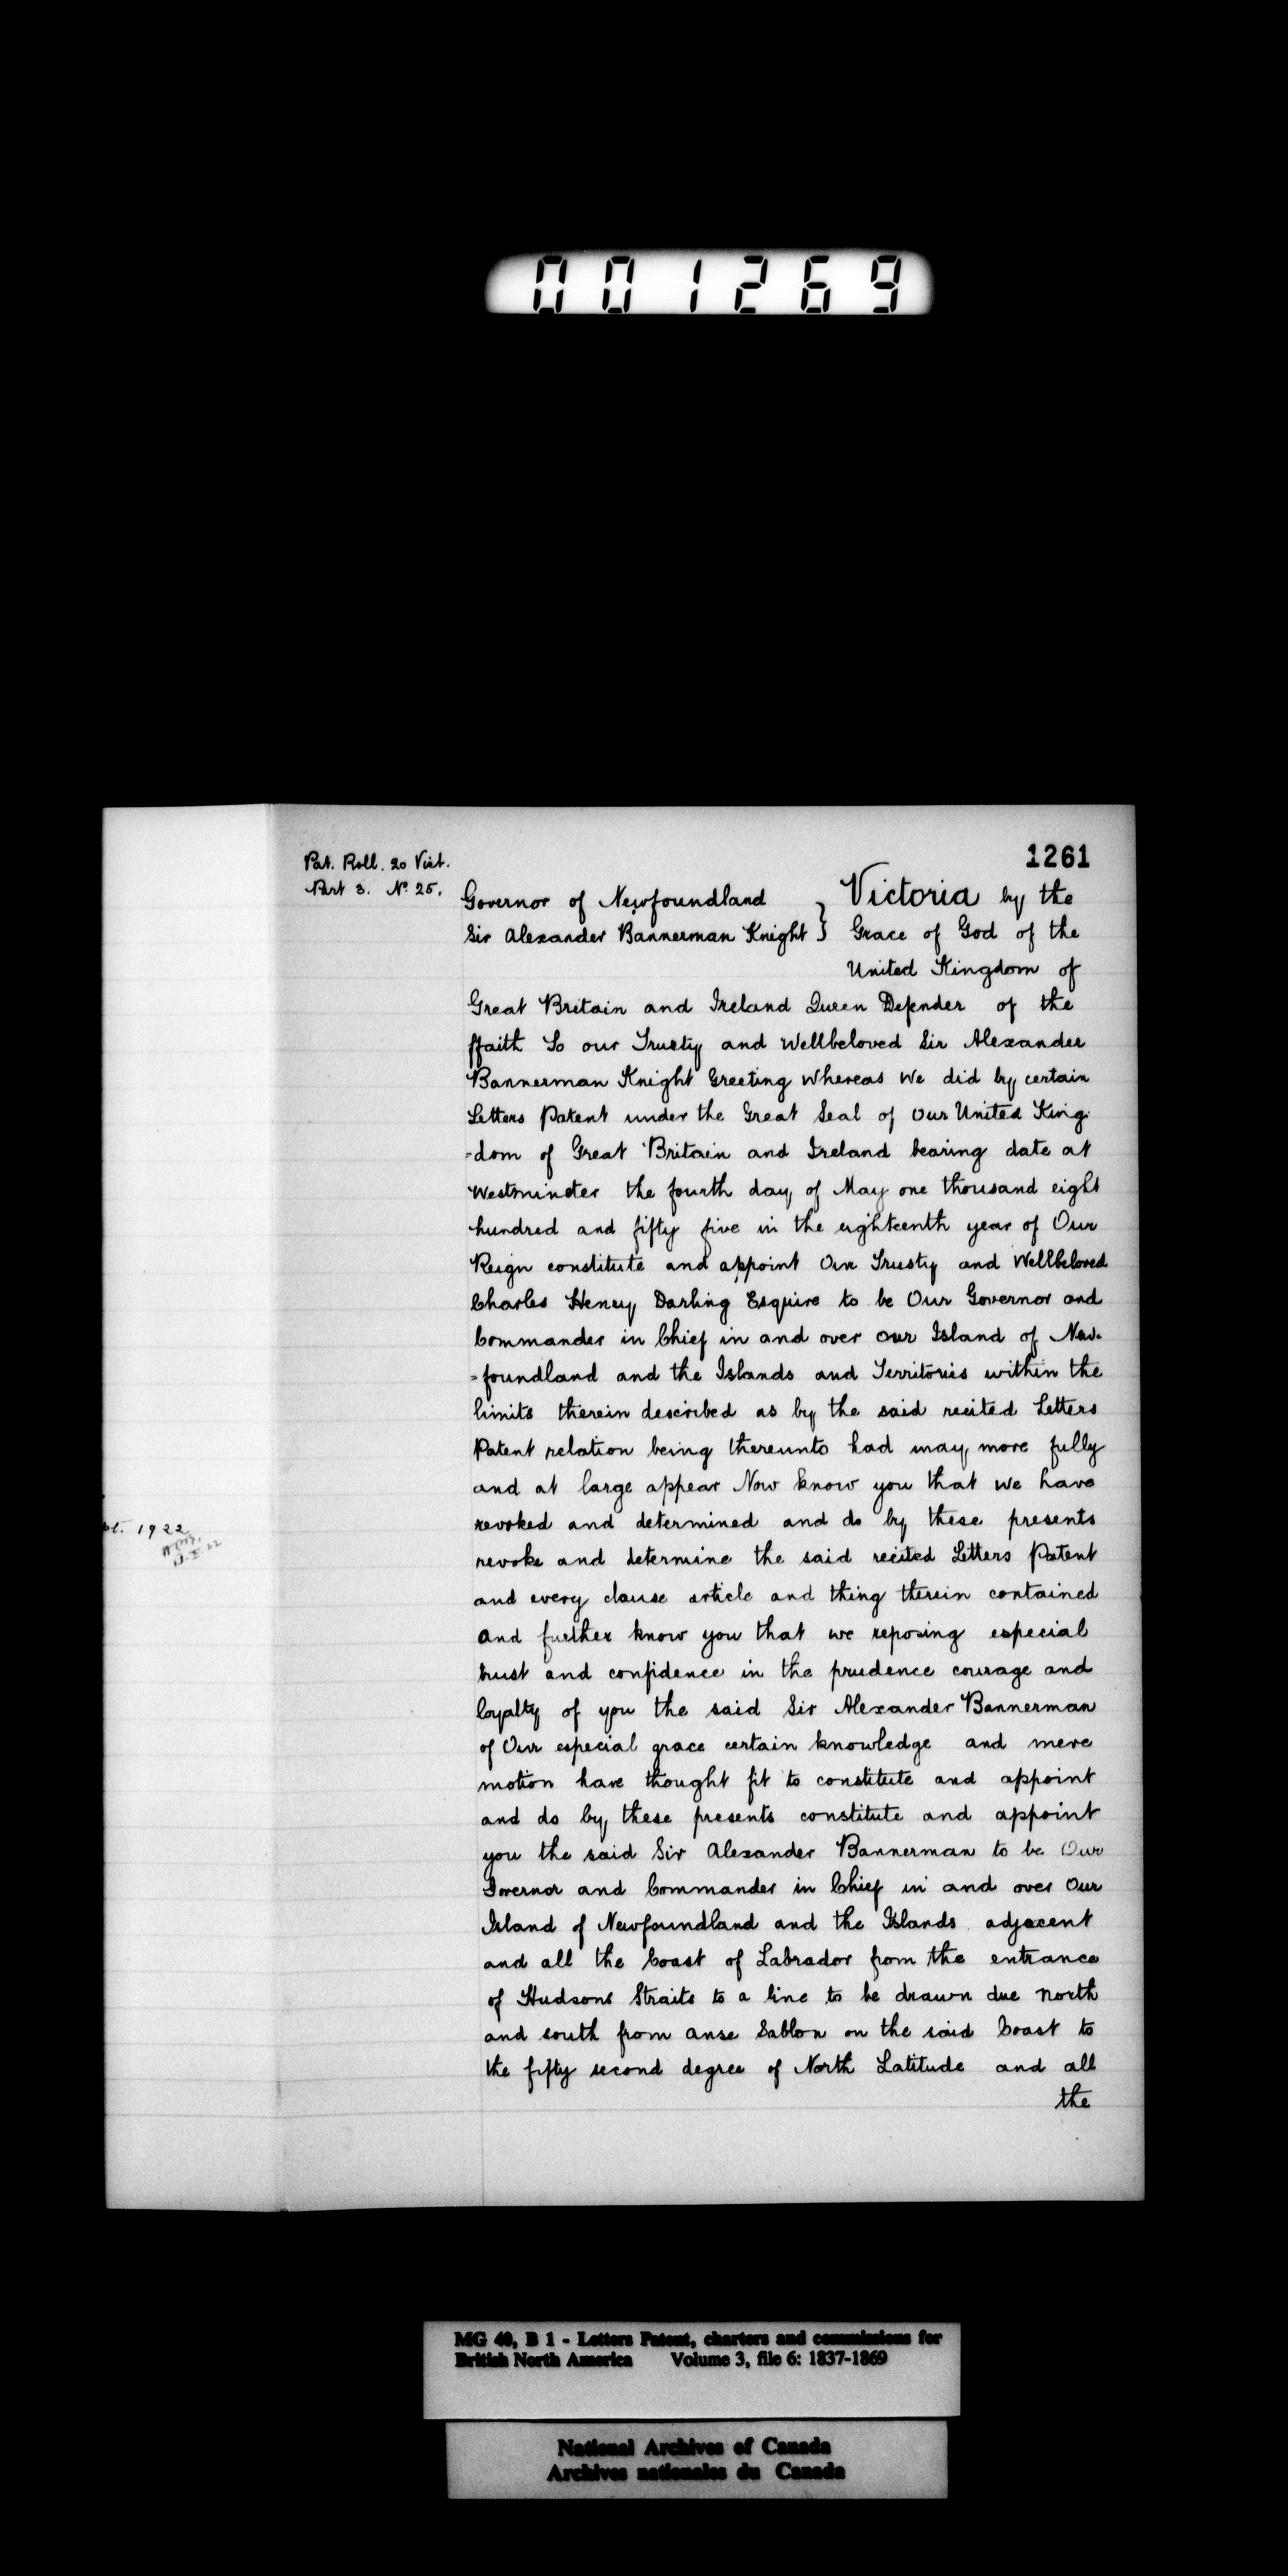 001269
1261
Pat. Roll. 20 Vict.
Part 3. No. 25.
Governor of Newfoundland
Sir Alexander Bannerman Knight }
Victoria by the
Grace of God of the
United Kingdom of
Great Britain and Ireland Queen Defender of the
ffaith To our Trusty and Wellbeloved Sir Alexander
Bannerman Knight Greeting Whereas We did by certain
Letters Patent under the Great Seal of Our United King-
=dom of Great Britain and Ireland bearing date at
Westminster the fourth day of May one thousand eight
hundred and fifty five in the eighteenth year of Our
Reign constitute and appoint Our Trusty and Wellbeloved
Charles Henry Darling Esquire to be Our Governor and
Commander in Chief in and over our Island of New-
=foundland and the Islands and Territories within the
limits therein described as by the said recited Letters
Patent relation being thereunto had may more fully
and at large appear Now know you that we have
revoked and determined and do by these presents
revoke and determine the said recited Letters Patent
and every clause article and thing therein contained
And further know you that we reposing especial
trust and confidence in the prudence courage and
loyalty of you the said Sir Alexander Bannerman
of Our especial grace certain knowledge and mere
motion have thought fit to constitute and appoint
and do by these presents constitute and appoint
you the said Sir Alexander Bannerman to be Our
Governor and Commander in Chief in and over Our
Island of Newfoundland and the Islands adjacent
and all the Coast of Labrador from the entrance
of Hudsons Straits to a line to be drawn due North
and south from Anse Sablon on the said Coast to
the fifty second degree of North Latitude and all
the
pt. 1922
MG 40, B 1 - Letters Patent, charters and commissions for
British North America Volume 3, file 6: 1837-1869
National Archives of Canada
Archives nationales du Canada